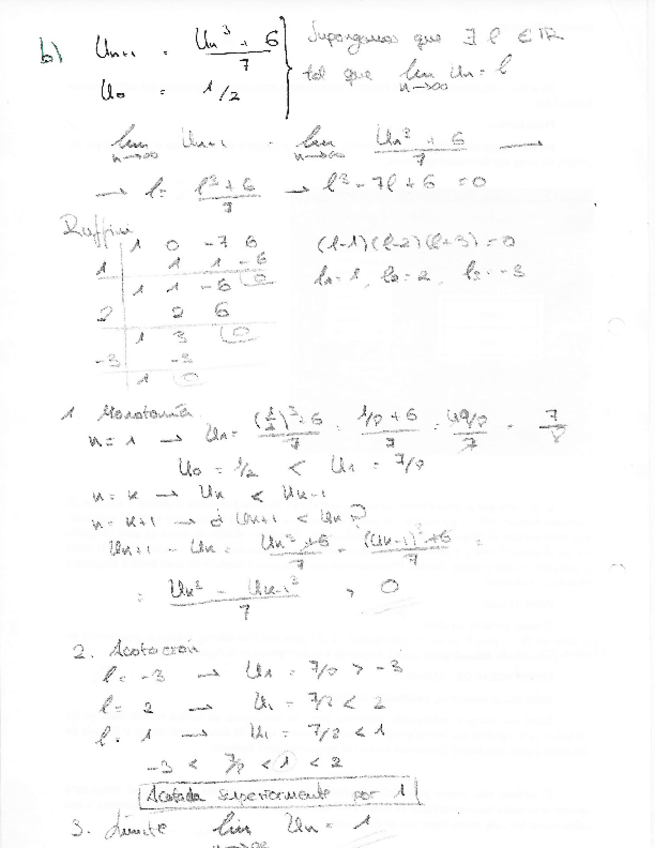 b) Un+1 = Un³ + 6 / 7 } Supongamos que ∃ l ∈ IR
U0 = 1/2 } tal que lim n→∞ Un = l
lim n→∞ Un+1 = lim n→∞ Un³ + 6 / 7 →
→ l = l³+6 / 7 → l³ - 7l + 6 = 0
Ruffini
1 0 -7 6 (l-1)(l-2)(l+3) = 0
1 1 1 -6 l1 = 1, l2 = 2, l3 = -3
1 1 -6 0
2 2 6
1 3 0
-3 -3
1 0
1 Monotonía
n = 1 → U1 = (1/2)³+6 / 7 = 1/8 + 6 / 7 = 49/8 / 7 = 7/8
U0 = 1/2 < U1 = 7/8
n = k → Uk < Uk-1
n = k+1 → ¿ Uk+1 < Uk?
Uk+1 - Uk = Uk³+6 / 7 - (Uk-1)³+6 / 7 =
= Uk³ - Uk-1³ / 7 > 0
2. Acotación
l = -3 → U1 = 7/8 > -3
l = 2 → U1 = 7/8 < 2
l = 1 → U1 = 7/8 < 1
-3 < 7/8 < 1 < 2
Acotada superiormente por 1
3. Límite lim n→∞ Un = 1